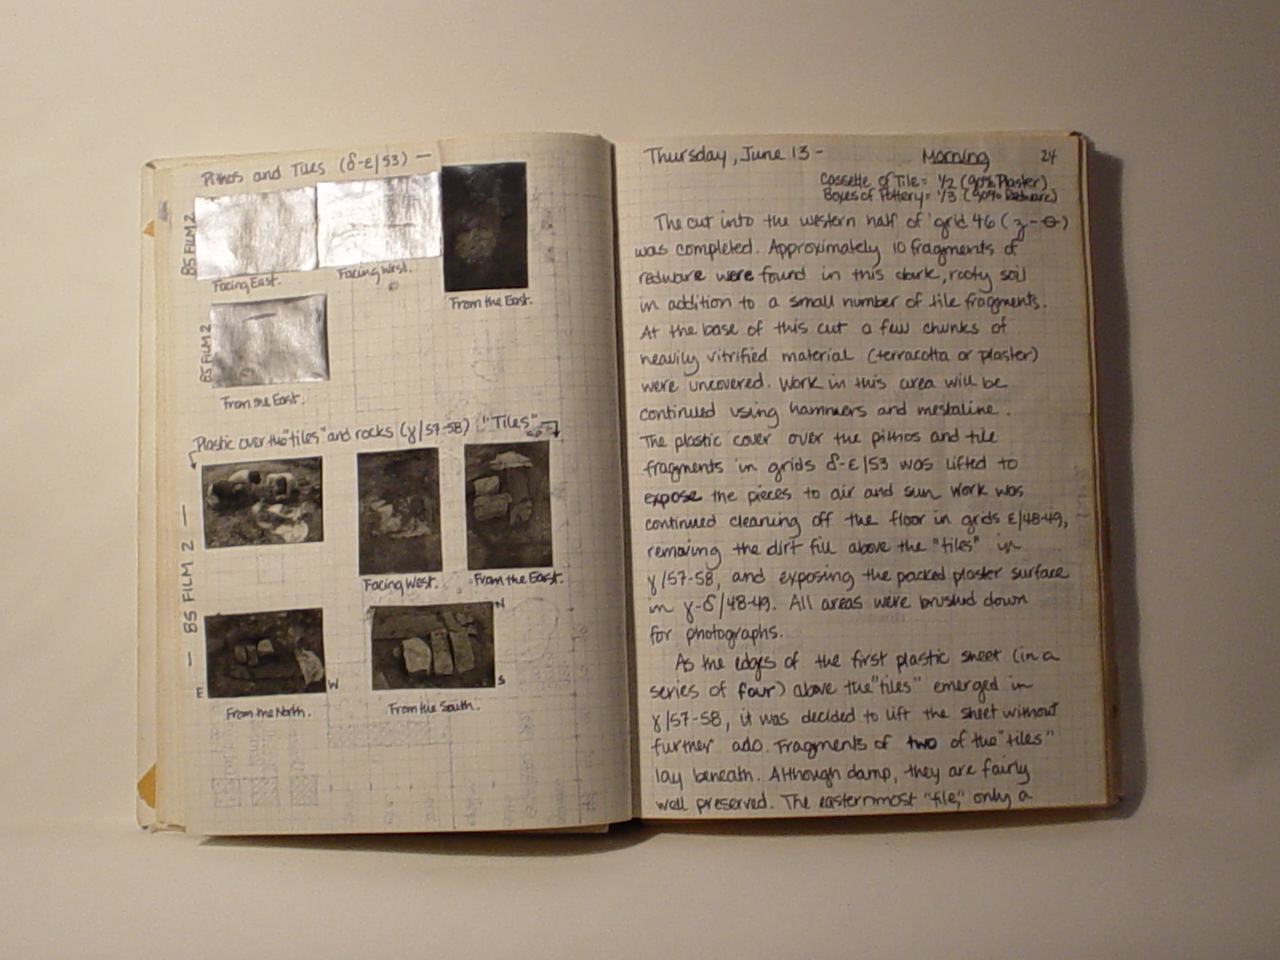 Pithos and Tiles (δ-ε/53) —
BS FILM 2
Facing East.
Facing West.
From the East.
BS FILM 2
From the East.
Plastic over the "tiles" and rocks (γ/57-58)
"Tiles"
— BS FILM 2 —
Facing West.
From the East.
E
W
From the North.
N
S
From the South.
Thursday, June 13 - Morning 24
Cassette of Tile = 1/2 (90% Plaster)
Boxes of Pottery = 1/3 (90% Redware)
The cut into the western half of grid 46 (z-θ)
was completed. Approximately 10 fragments of
redware were found in this dark, rooty soil
in addition to a small number of tile fragments.
At the base of this cut a few chunks of
heavily vitrified material (terracotta or plaster)
were uncovered. Work in this area will be
continued using hammers and mestaline.
The plastic cover over the pithos and tile
fragments in grids δ-ε/53 was lifted to
expose the pieces to air and sun. Work was
continued cleaning off the floor in grids ε/48-49,
removing the dirt fill above the "tiles" in
γ/57-58, and exposing the packed plaster surface
in γ-δ/48-49. All areas were brushed down
for photographs.
As the edges of the first plastic sheet (in a
series of four) above the "tiles" emerged in
γ/57-58, it was decided to lift the sheet without
further ado. Fragments of two of the "tiles"
lay beneath. Although damp, they are fairly
well preserved. The easternmost "tile," only a